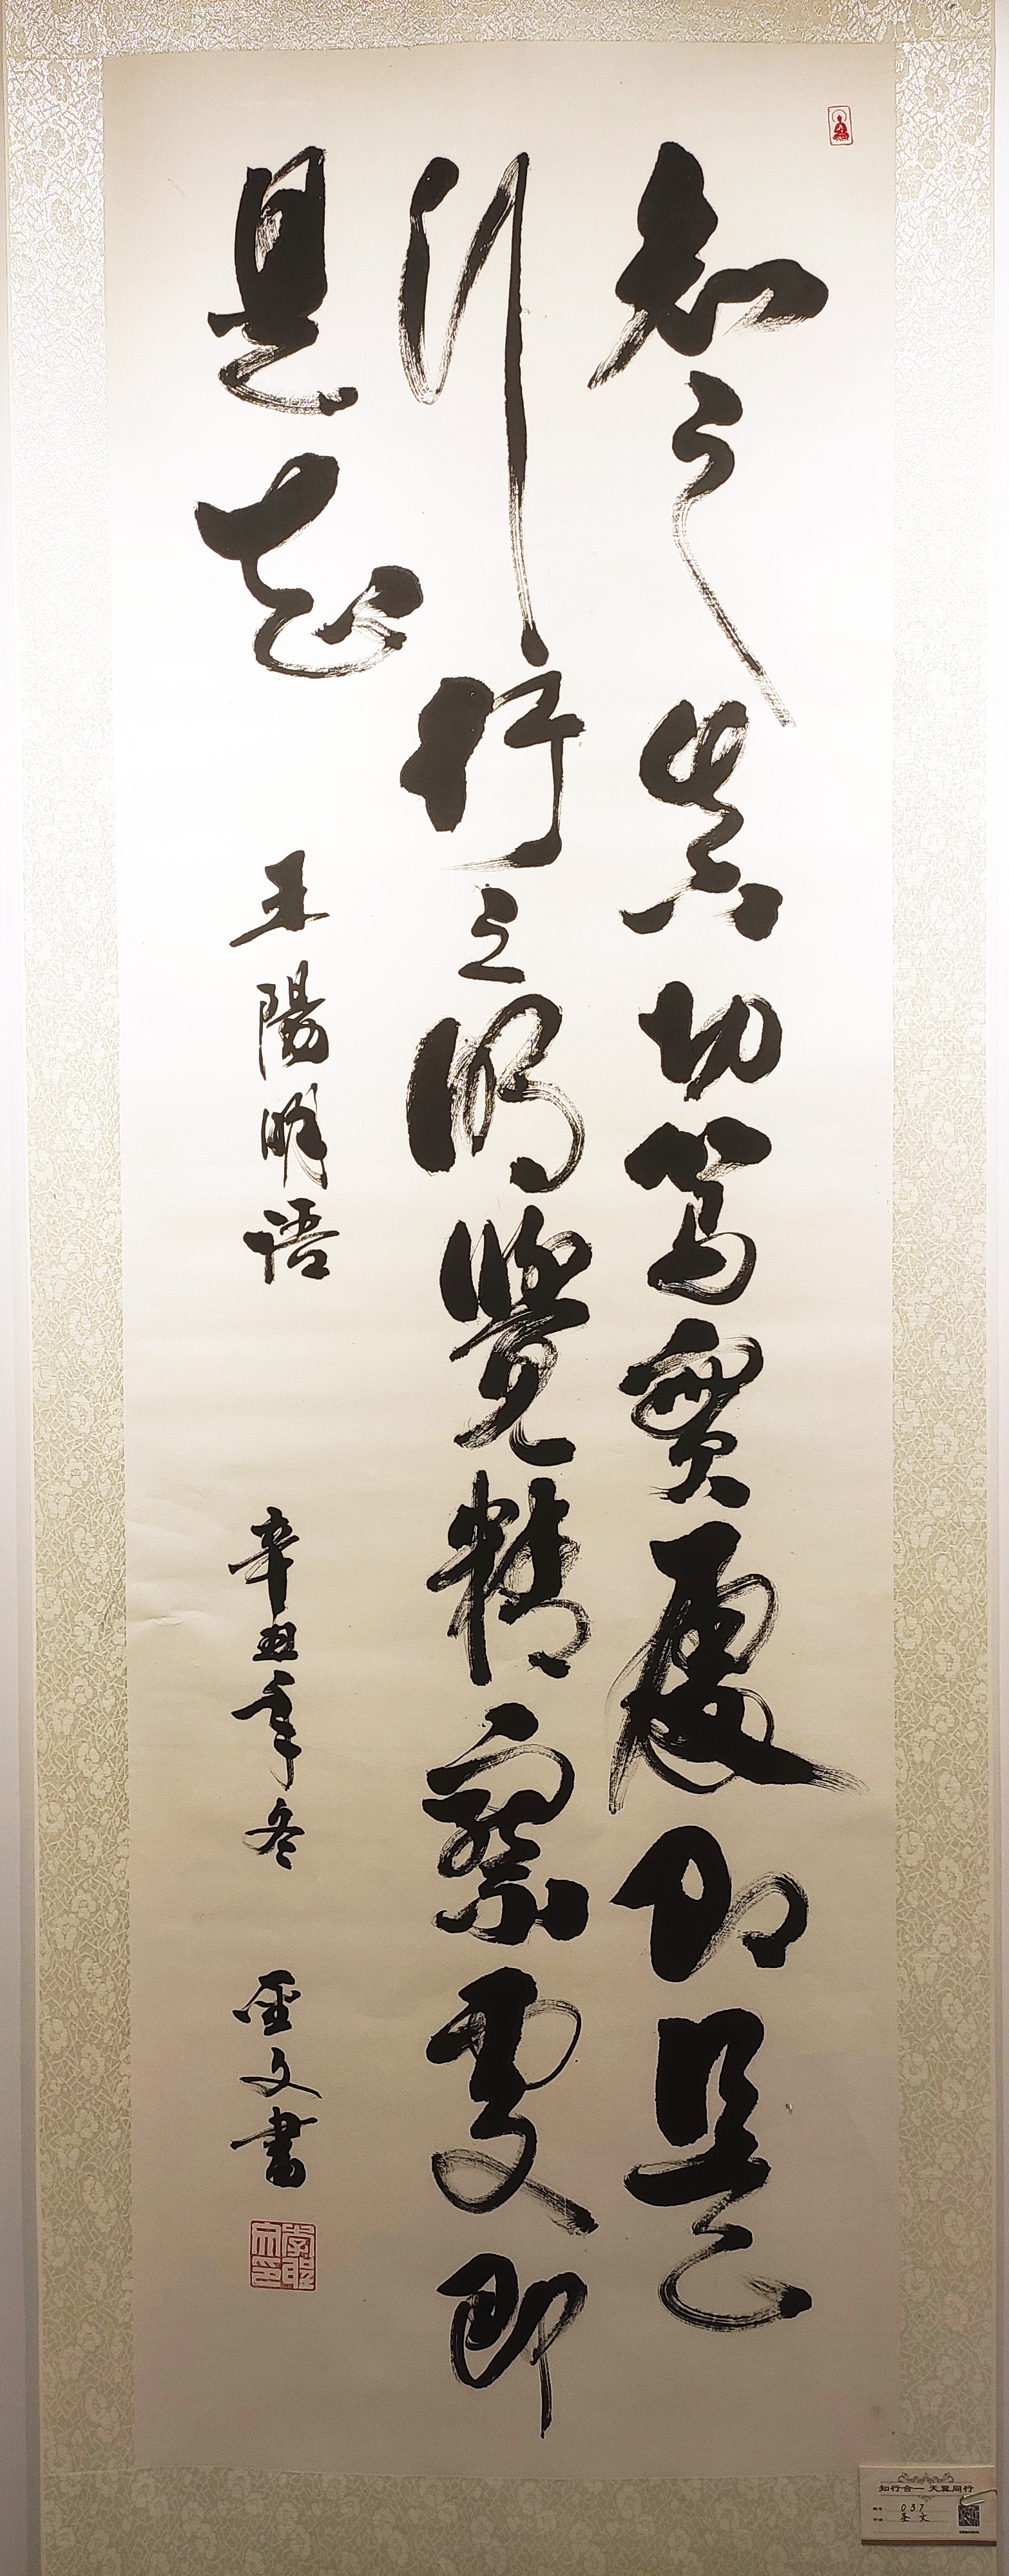 知之真切篤實處即是
行行之明覺精察處即
是知
王陽明語 辛丑年冬 圣文書
知行合一 天翼同行
037
圣文